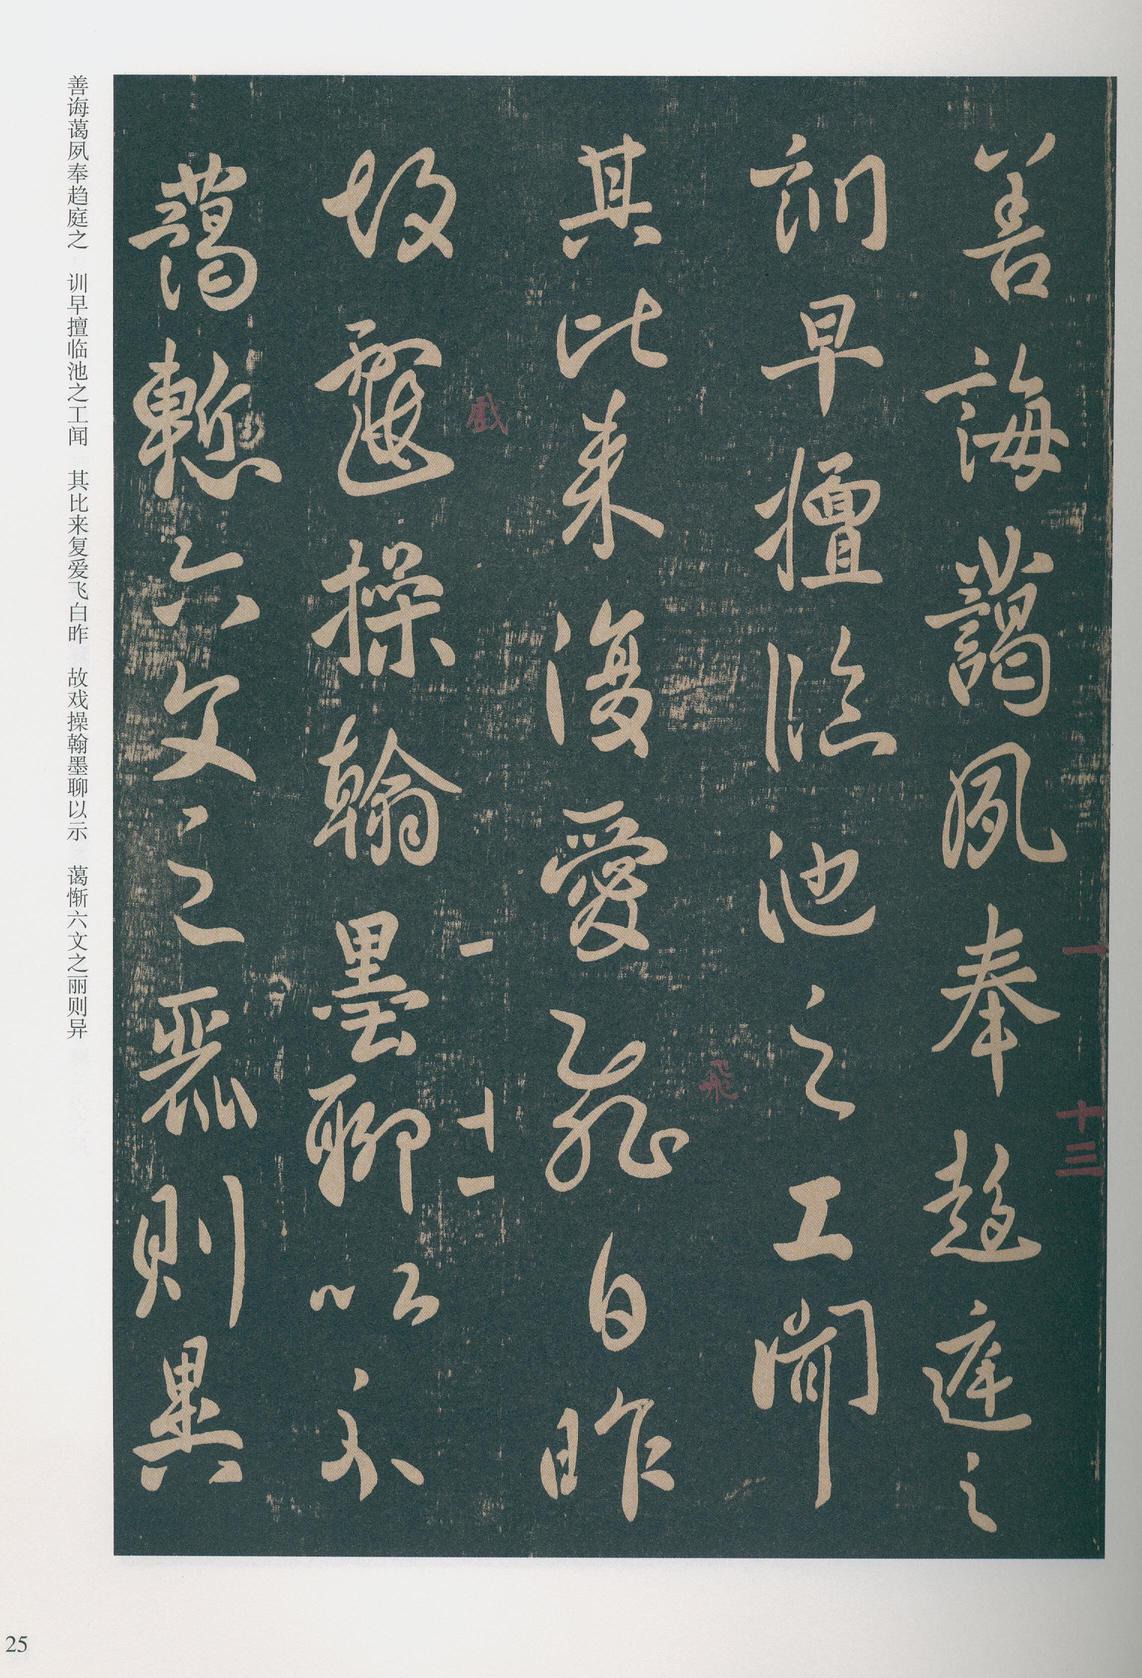 善誨藹夙奉趍庭之
訓早擅臨池之工聞
其比来復愛飛白昨
故戲操翰墨聊以示
藹慙六文之麗則異
飛
戲
一
十三
一
十一
善诲蔼夙奉趋庭之　训早擅临池之工闻　其比来复爱飞白昨　故戏操翰墨聊以示　蔼惭六文之丽则异
25